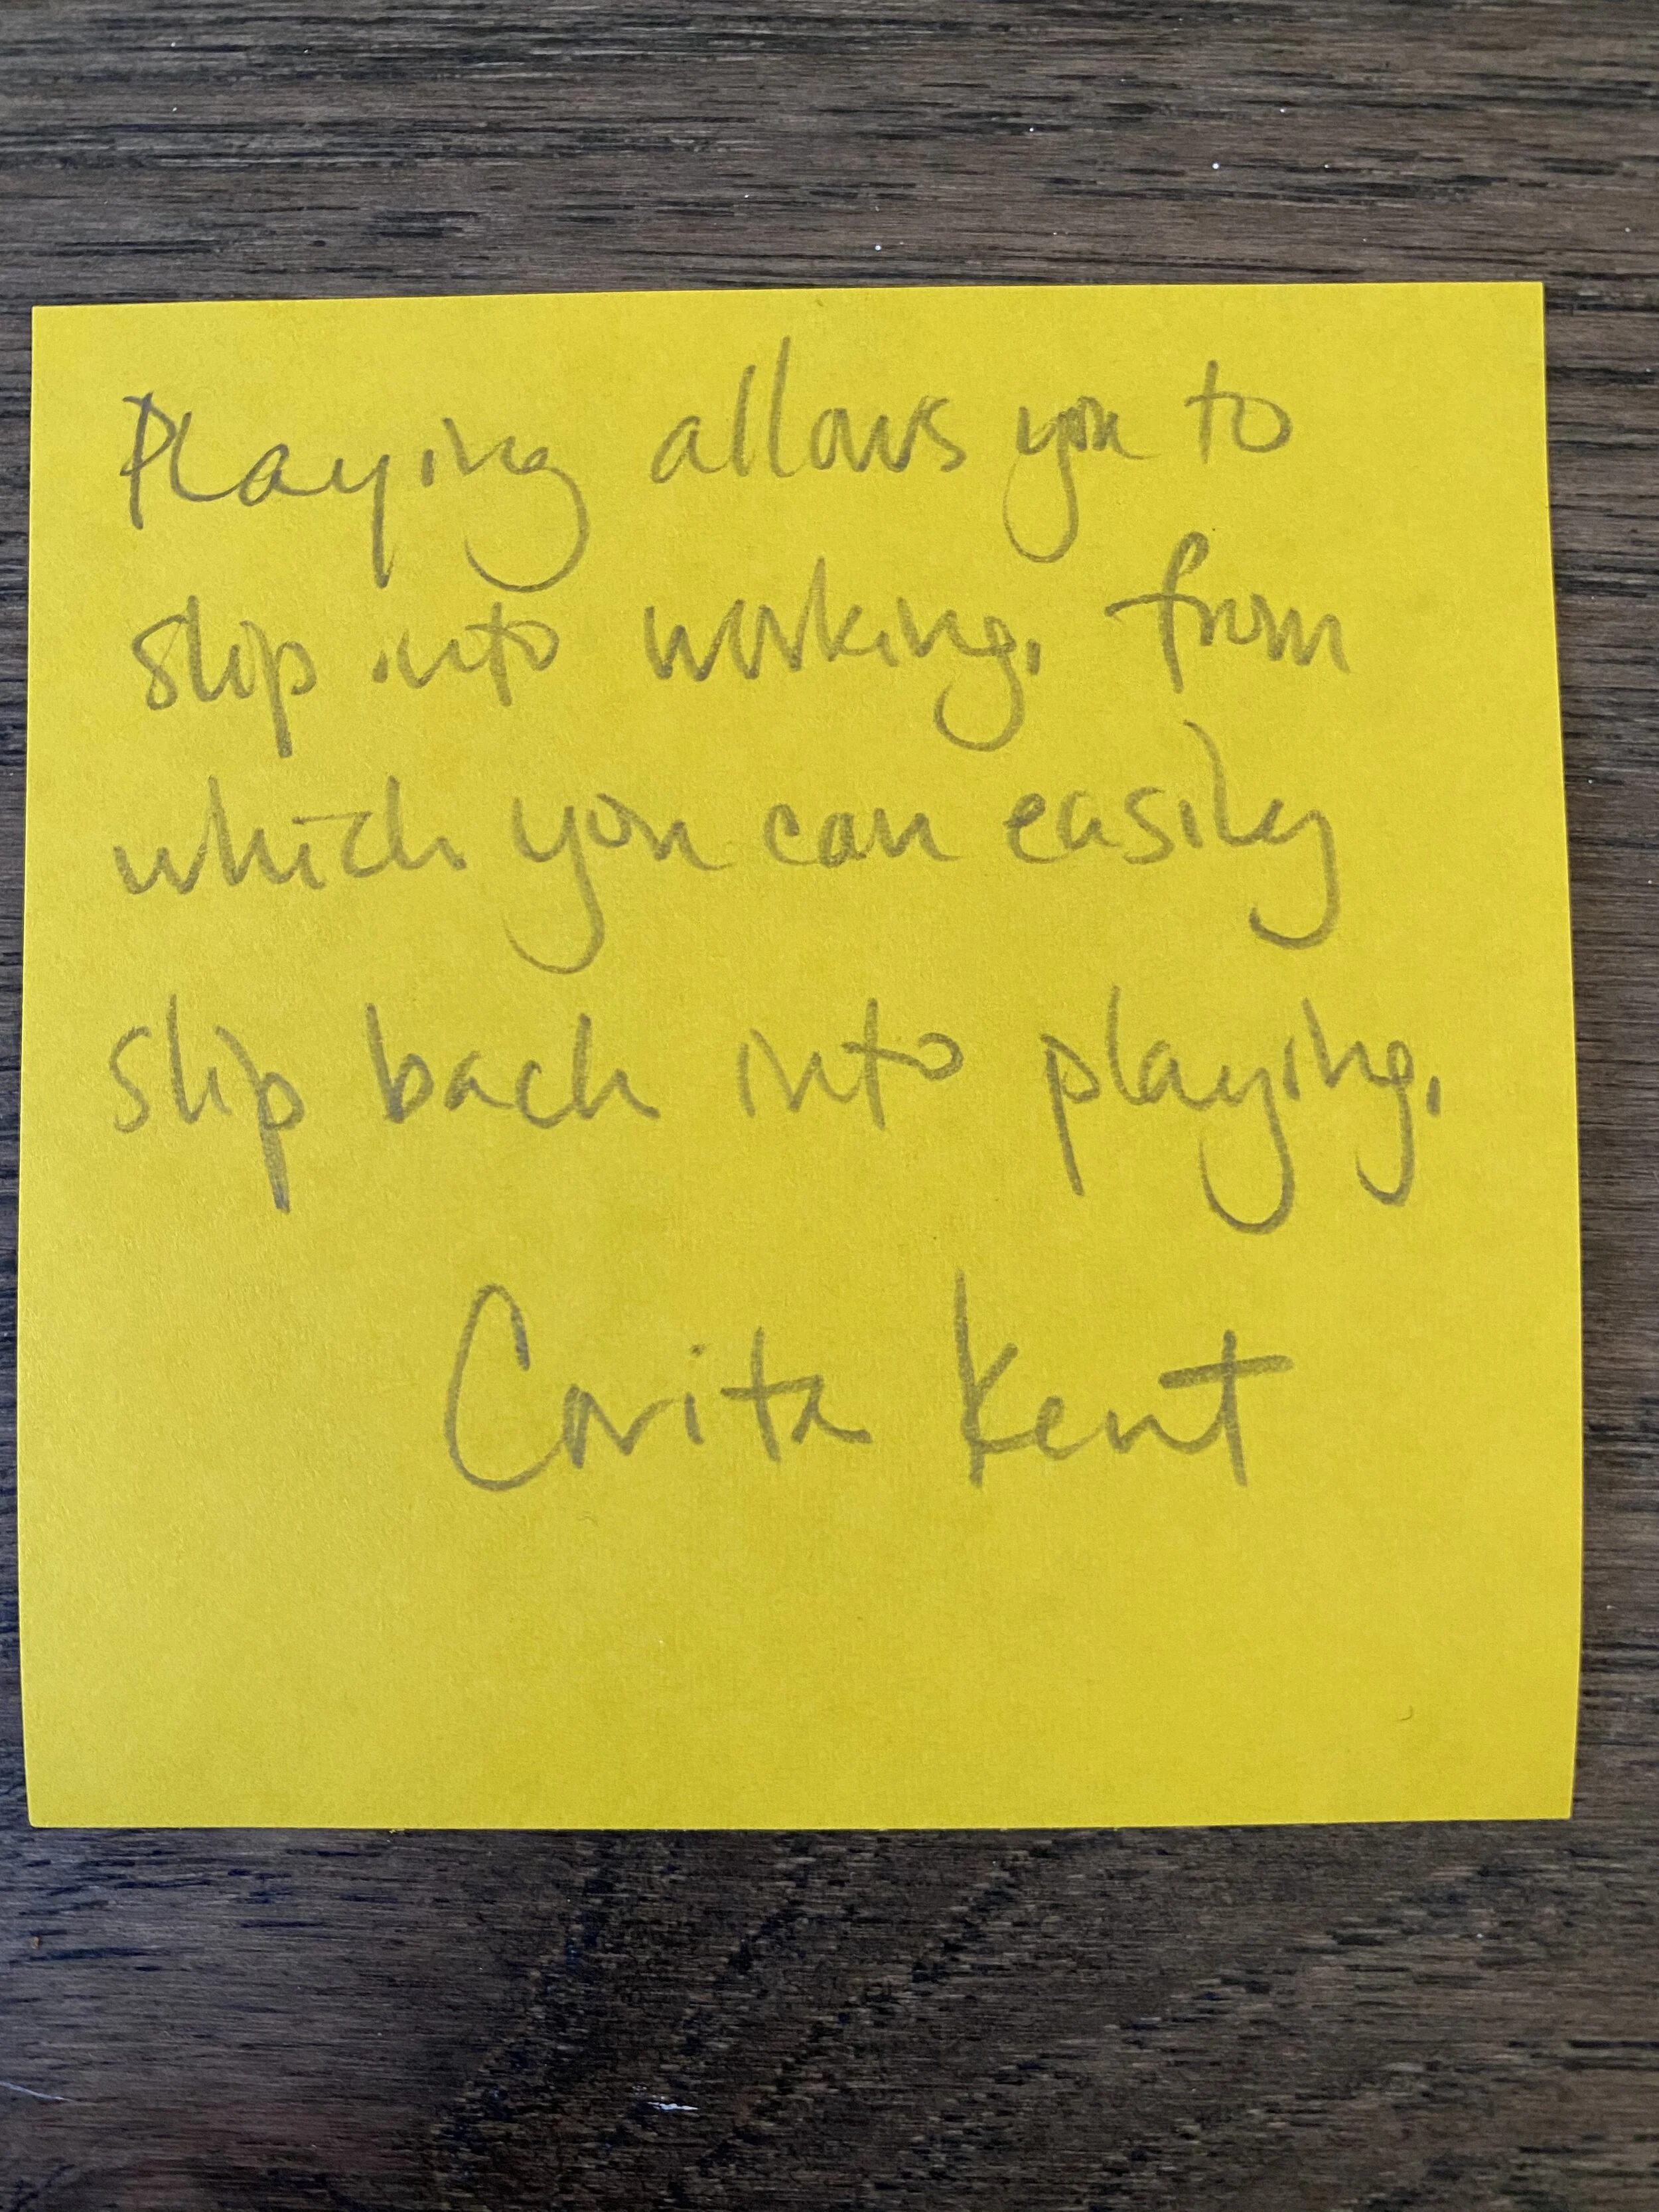 Playing allows you to
slip into working, from
which you can easily
slip back into playing.
Corita Kent